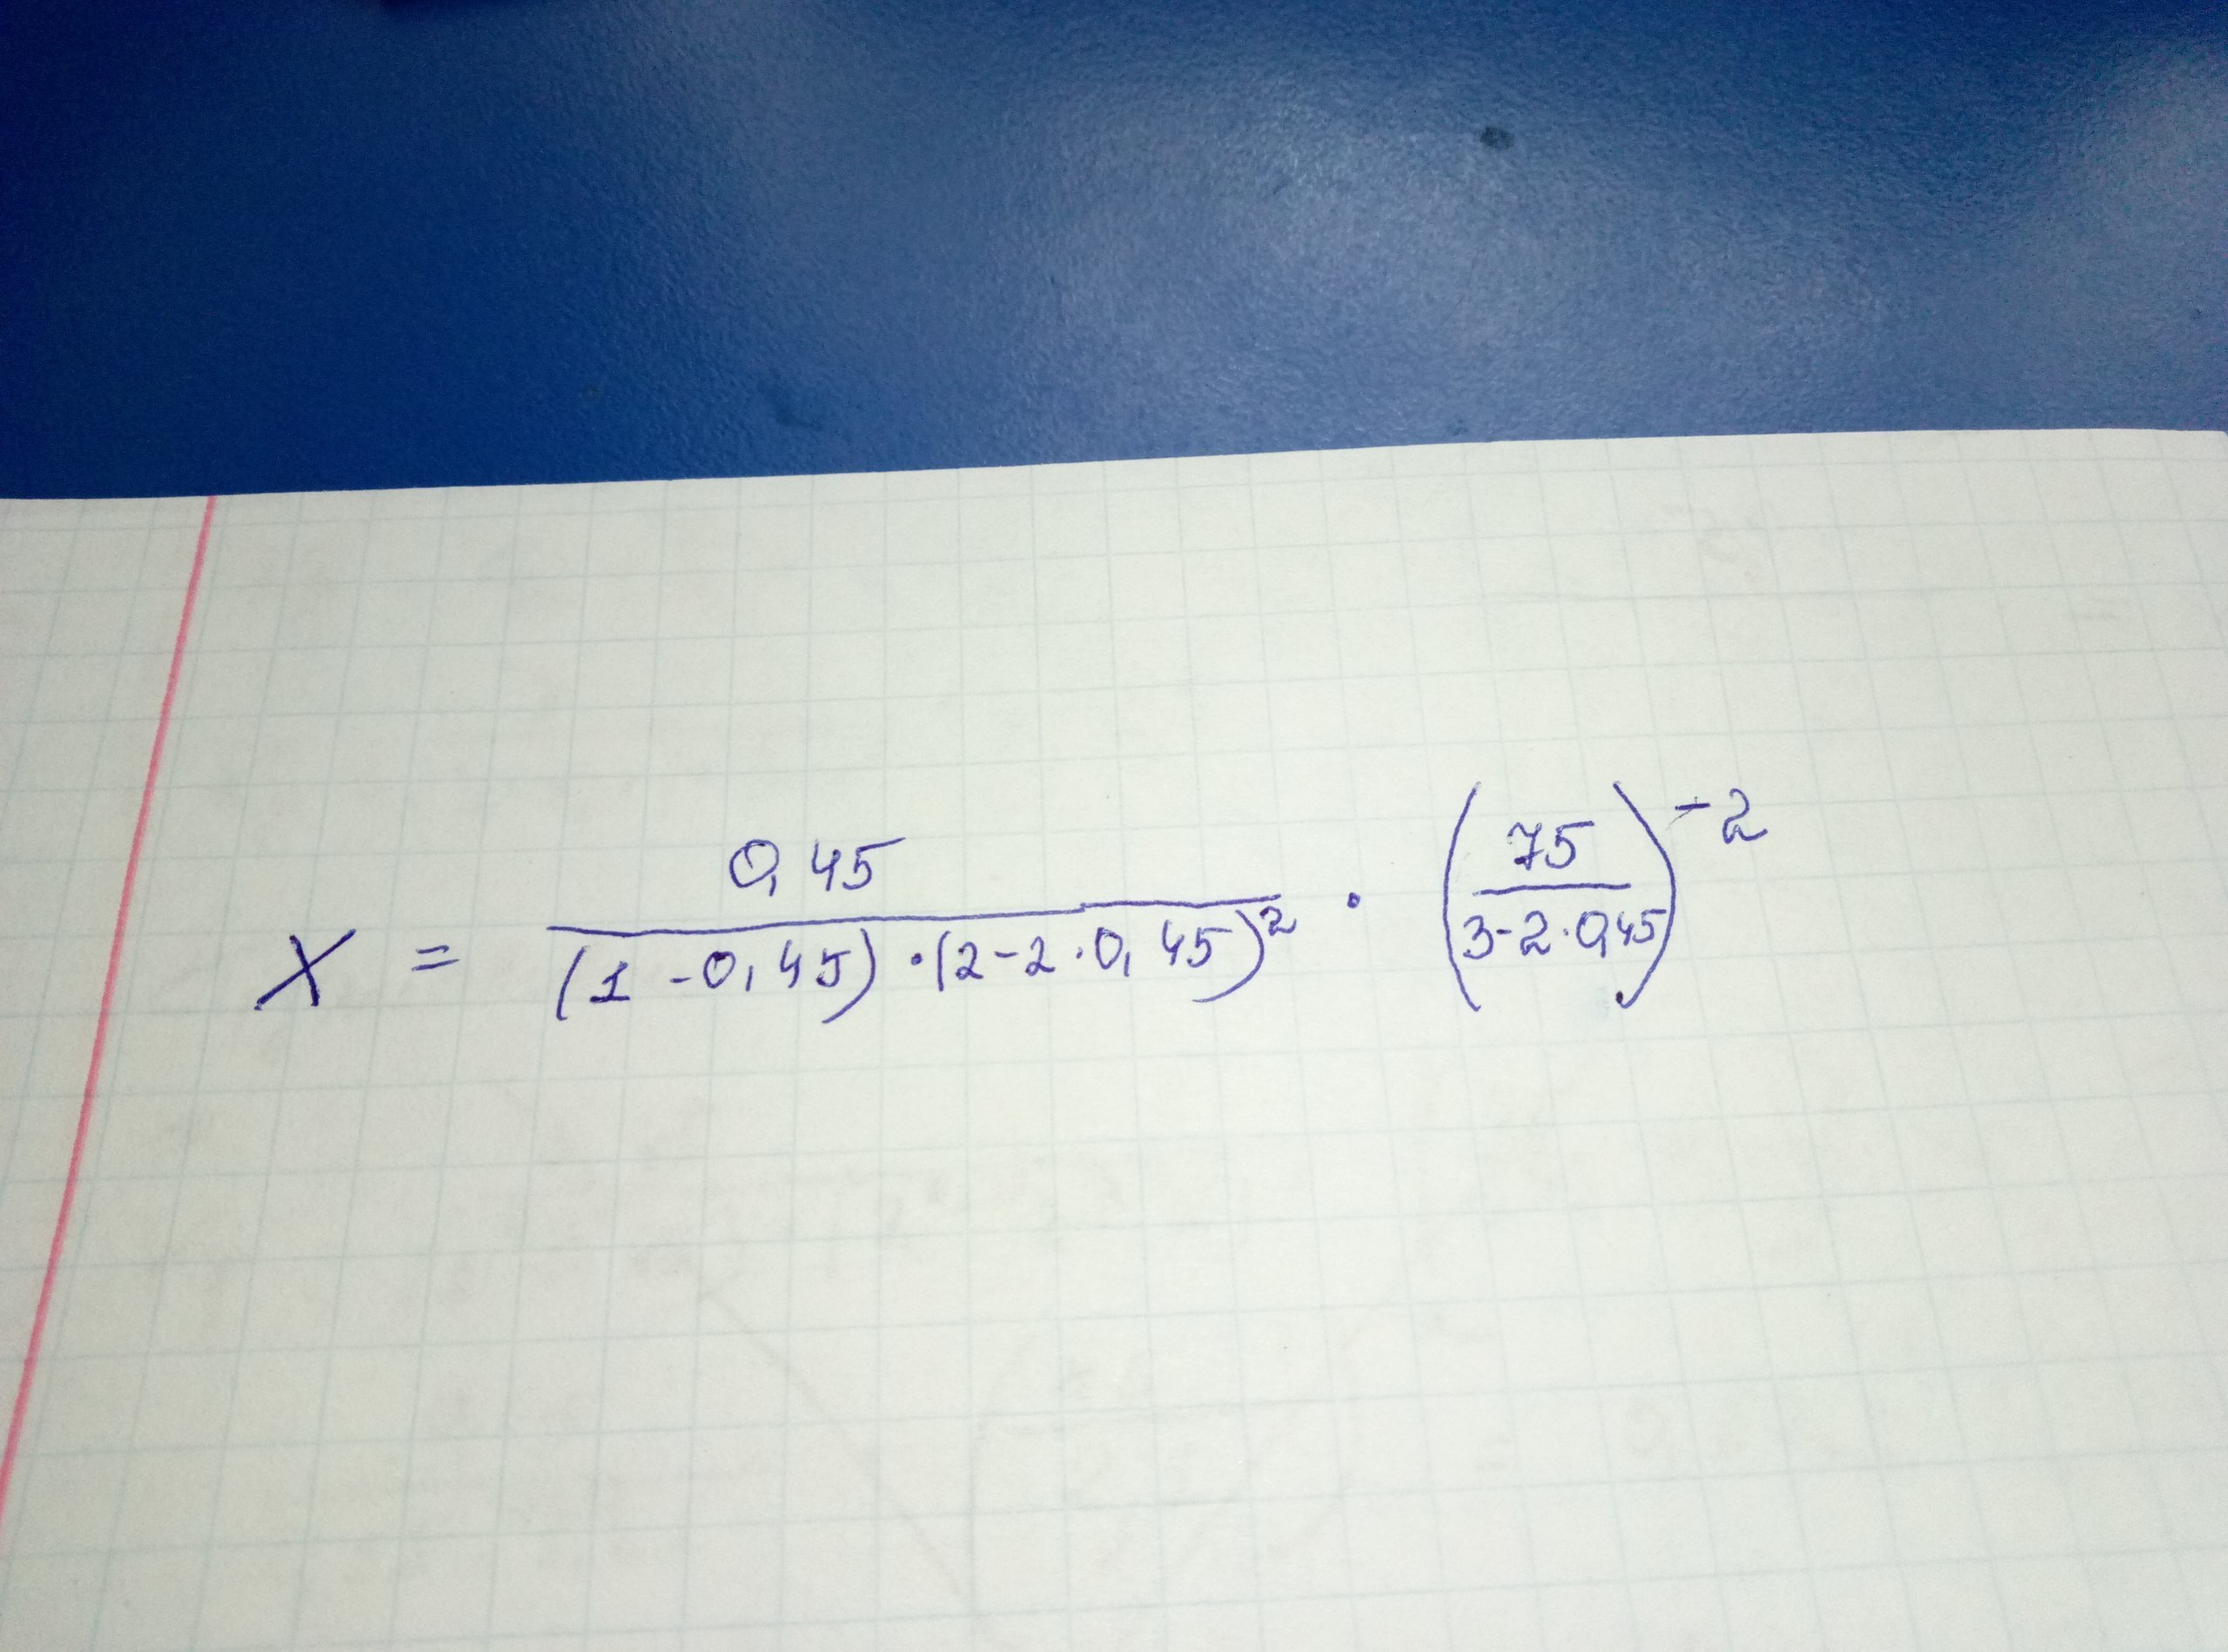 X = 0,45 / ((1 - 0,45) · (2 - 2 · 0,45)² ) · (75 / (3 - 2 · 0,45))⁻²